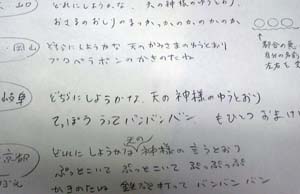 どれにしようかな、天の神様のゆうとおり
おさるのおしりのまっかっかのかのかのか
岡山 どちらにしようかな 天のかみさまのゆうとおり
プラペラポンのかきのたね
岐阜 どちらにしようかな、天の神様のゆうとおり
てっぽううってバンバンバン もひとつおまけ
京都 どれにしようかな 天の神様の言うとおり
ぷっとこいて ぷっとこいて ぷっぷっぷ
かきのたね 鉄砲打って バンバンバン
都合の悪
自分の
左右を